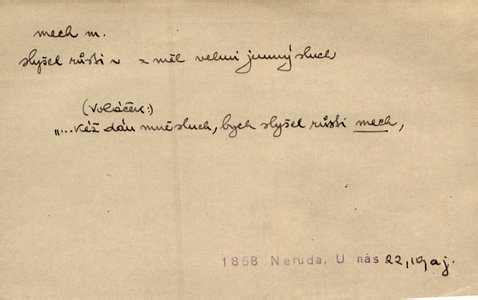 mech m.
slyšel růsti ~ = měl velmi jemný sluch
(Voláček:)
„...kéž dán mně sluch, bych slyšel růsti mech,
1858 Neruda, U nás 22, 19 aj.